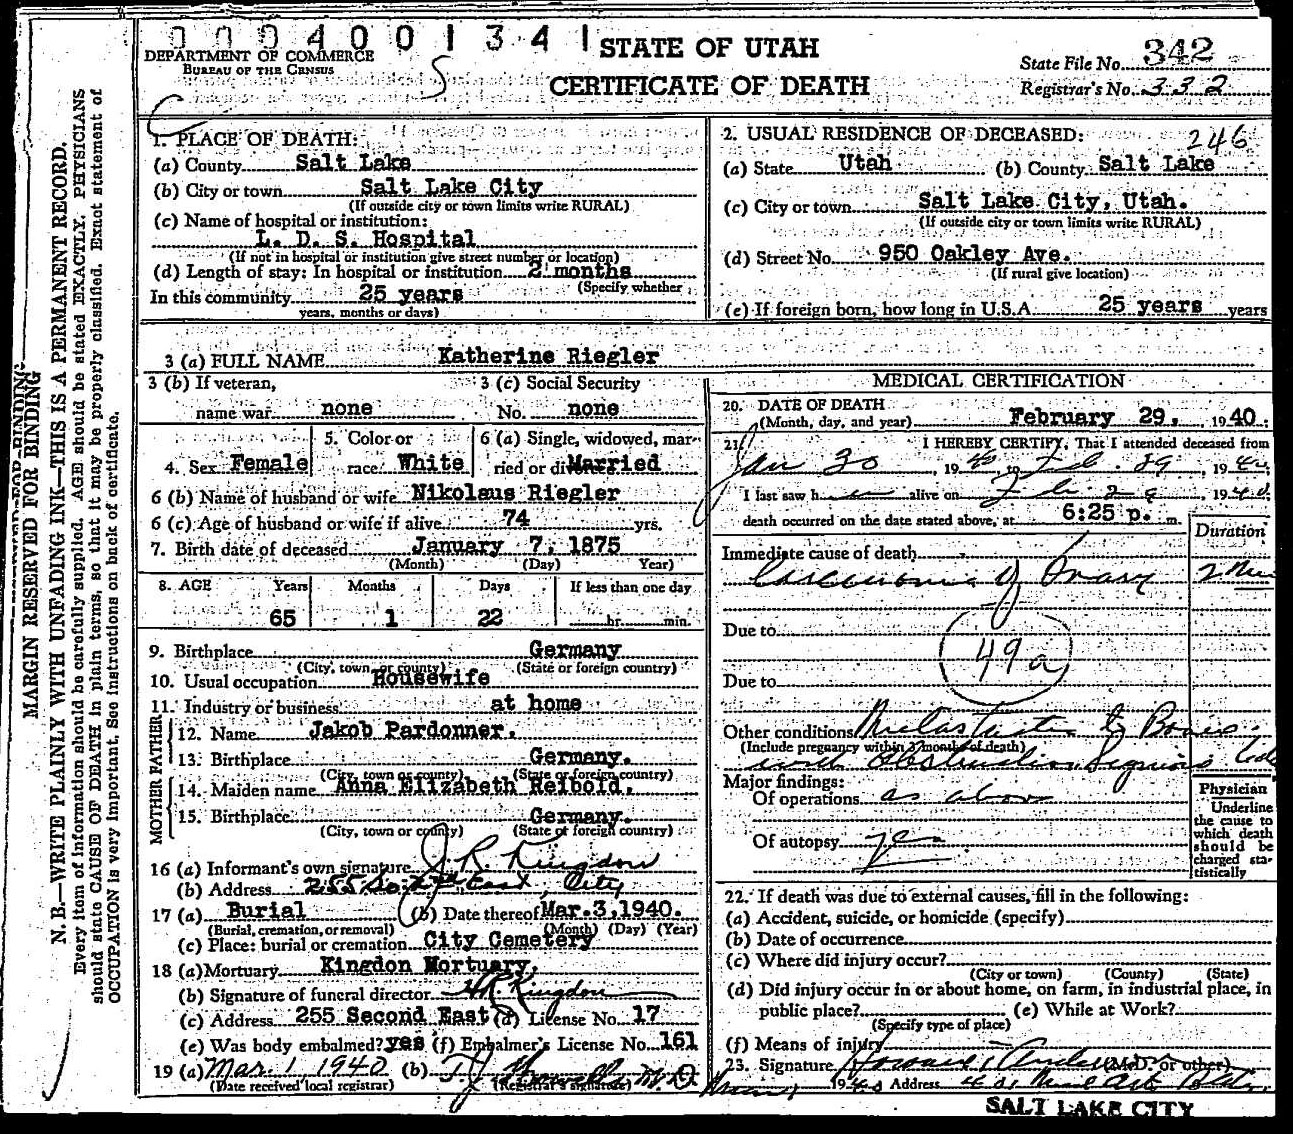 0004001341
DEPARTMENT OF COMMERCE
BUREAU OF THE CENSUS
STATE OF UTAH
CERTIFICATE OF DEATH
State File No. 342
Registrar's No. 332
1. PLACE OF DEATH:
(a) County Salt Lake
(b) City or town Salt Lake City
(If outside city or town limits write RURAL)
(c) Name of hospital or institution:
L. D. S. Hospital
(If not in hospital or institution give street number or location)
(d) Length of stay: In hospital or institution 2 months
(Specify whether
In this community 25 years
years, months or days)
2. USUAL RESIDENCE OF DECEASED: 246
(a) State Utah (b) County Salt Lake
(c) City or town Salt Lake City, Utah.
(If outside city or town limits write RURAL)
(d) Street No. 950 Oakley Ave.
(If rural give location)
(e) If foreign born, how long in U.S.A. 25 years years
3 (a) FULL NAME Katherine Riegler
3 (b) If veteran,
name war none
3 (c) Social Security
No. none
4. Sex Female
5. Color or
race White
6 (a) Single, widowed, mar-
ried or di Married
6 (b) Name of husband or wife Nikolaus Riegler
6 (c) Age of husband or wife if alive 74 yrs.
7. Birth date of deceased January 7, 1875
(Month) (Day) Year)
8. AGE Years Months Days If less than one day
65 1 22 hr. min.
9. Birthplace Germany
(City, town or county) (State or foreign country)
10. Usual occupation Housewife
11. Industry or business at home
FATHER
12. Name Jakob Pardonner.
13. Birthplace Germany.
(City, town or county) (State or foreign country)
MOTHER
14. Maiden name Anna Elizabeth Reibold.
15. Birthplace Germany.
(City, town or county) (State or foreign country)
16 (a) Informant's own signature J R Kingdon
(b) Address 255 So. 2nd East, City
17 (a) Burial (b) Date thereof Mar.3,1940.
(Burial, cremation, or removal) (Month) (Day) (Year)
(c) Place: burial or cremation City Cemetery
18 (a) Mortuary Kingdon Mortuary.
(b) Signature of funeral director Kingdon
(c) Address 255 Second East (d) License No. 17
(e) Was body embalmed? yes (f) Embalmer's License No. 161
19 (a) Mar 1, 1940 (b) M.D.
(Date received local registrar) (Registrar's signature)
MEDICAL CERTIFICATION
20. DATE OF DEATH
(Month, day, and year) February 29, 1940.
21. I HEREBY CERTIFY, That I attended deceased from
Jan 30, 1940 to Feb. 29, 1940
I last saw h alive on Feb 29, 1940.
death occurred on the date stated above, at 6:25 p. m.
Duration
Immediate cause of death
Carcinoma of Ovary
Due to
49a
Due to
Other conditions Metastates to Bones
(Include pregnancy within 3 months of death)
with Obstruction Sigmoid
Major findings:
Of operations as above
Of autopsy yes
Physician
Underline
the cause to
which death
should be
charged sta-
tistically
22. If death was due to external causes, fill in the following:
(a) Accident, suicide, or homicide (specify)
(b) Date of occurrence
(c) Where did injury occur?
(City or town) (County) (State)
(d) Did injury occur in or about home, on farm, in industrial place, in
public place? (e) While at Work?
(Specify type of place)
(f) Means of injury
23. Signature Howard Anderson (M.D. or other)
1940 Address
SALT LAKE CITY
MARGIN RESERVED FOR BINDING
N. B.—WRITE PLAINLY WITH UNFADING INK—THIS IS A PERMANENT RECORD.
Every item of information should be carefully supplied. AGE should be stated EXACTLY. PHYSICIANS
should state CAUSE OF DEATH in plain terms, so that it may be properly classified. Exact statement of
OCCUPATION is very important. See instructions on back of certificate.